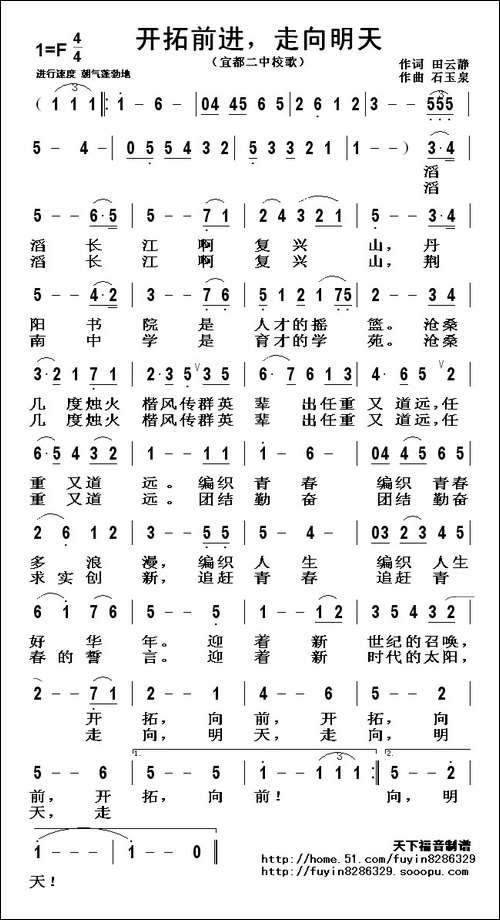 开拓前进，走向明天
1=F 4/4
（宜都二中校歌）
作词 田云静
进行速度 朝气蓬勃地
作曲 石玉泉
( 1 1 1 ‖: 1 - 6 - | 04 45 65 | 2 6 1 2 | 3 - - 555 |
5 - 4 - | 0 5 5 4 3 2 | 5 5 3 2 1 | 1 - - ) 3·4 |
滔
滔
5 - - 6·5 | 5 - - 7 1 | 2 4 3 2 1 | 5 - - 3·4 |
滔 长 江 啊 复 兴 山，丹
滔 长 江 啊 复 兴 山，荆
5 - - 4·2 | 3 - - 6·7 | 5 1 2 1 75 | 2 - - 3 4 |
阳 书 院 是 人才的摇 篮。沧桑
南 中 学 是 育才的学 苑。沧桑
3·2 1 7 1 | 2·3 5 V3 5 | 6·7 6 1 1 6 | 4· 6 5 V2 |
几 度烛火 楷风传群英 辈 出任重 又 道远，任
几 度烛火 楷风传群英 辈 出任重 又 道远，任
6·5 4 3 2 | 1 - - 1 1 | 1 - 6 - | 04 4 5 6 5 |
重 又 道 远。编织 青 春 编织 青春
重 又 道 远。团结 勤 奋 团结 勤奋
2 6 1 2 | 3 - - 5 5 | 5 - 4 - | 03 2 3 4 3 |
多 浪 漫，编织 人 生 编织 人生
求 实 创 新，追赶 青 春 追赶 青 春
6 1 7 6 | 5 - - 5 | 1 - - 1 2 | 3 5 4 3 2 |
好 华 年。迎 着 新 世纪的召唤，
春 的 誓 言。迎 着 新 时代的太阳，
2 - - 7 1 | 2 - - 2 | 5 - - 4 5 | 6 - - 4 |
开 拓，向 前，开 拓，向
走 向，明 天，走 向，明
5 - - 6 | 5 - - 2 | 1. 1 - - 1 1 1 :‖ 2. 5 - - 2 |
前，开 拓，向 前！ 向，明
天，走
1 - - - | 1 - - 0 ‖
天！
天下福音制谱
http://home.51.com/fuyin8286329
http://fuyin8286329.sooopu.com